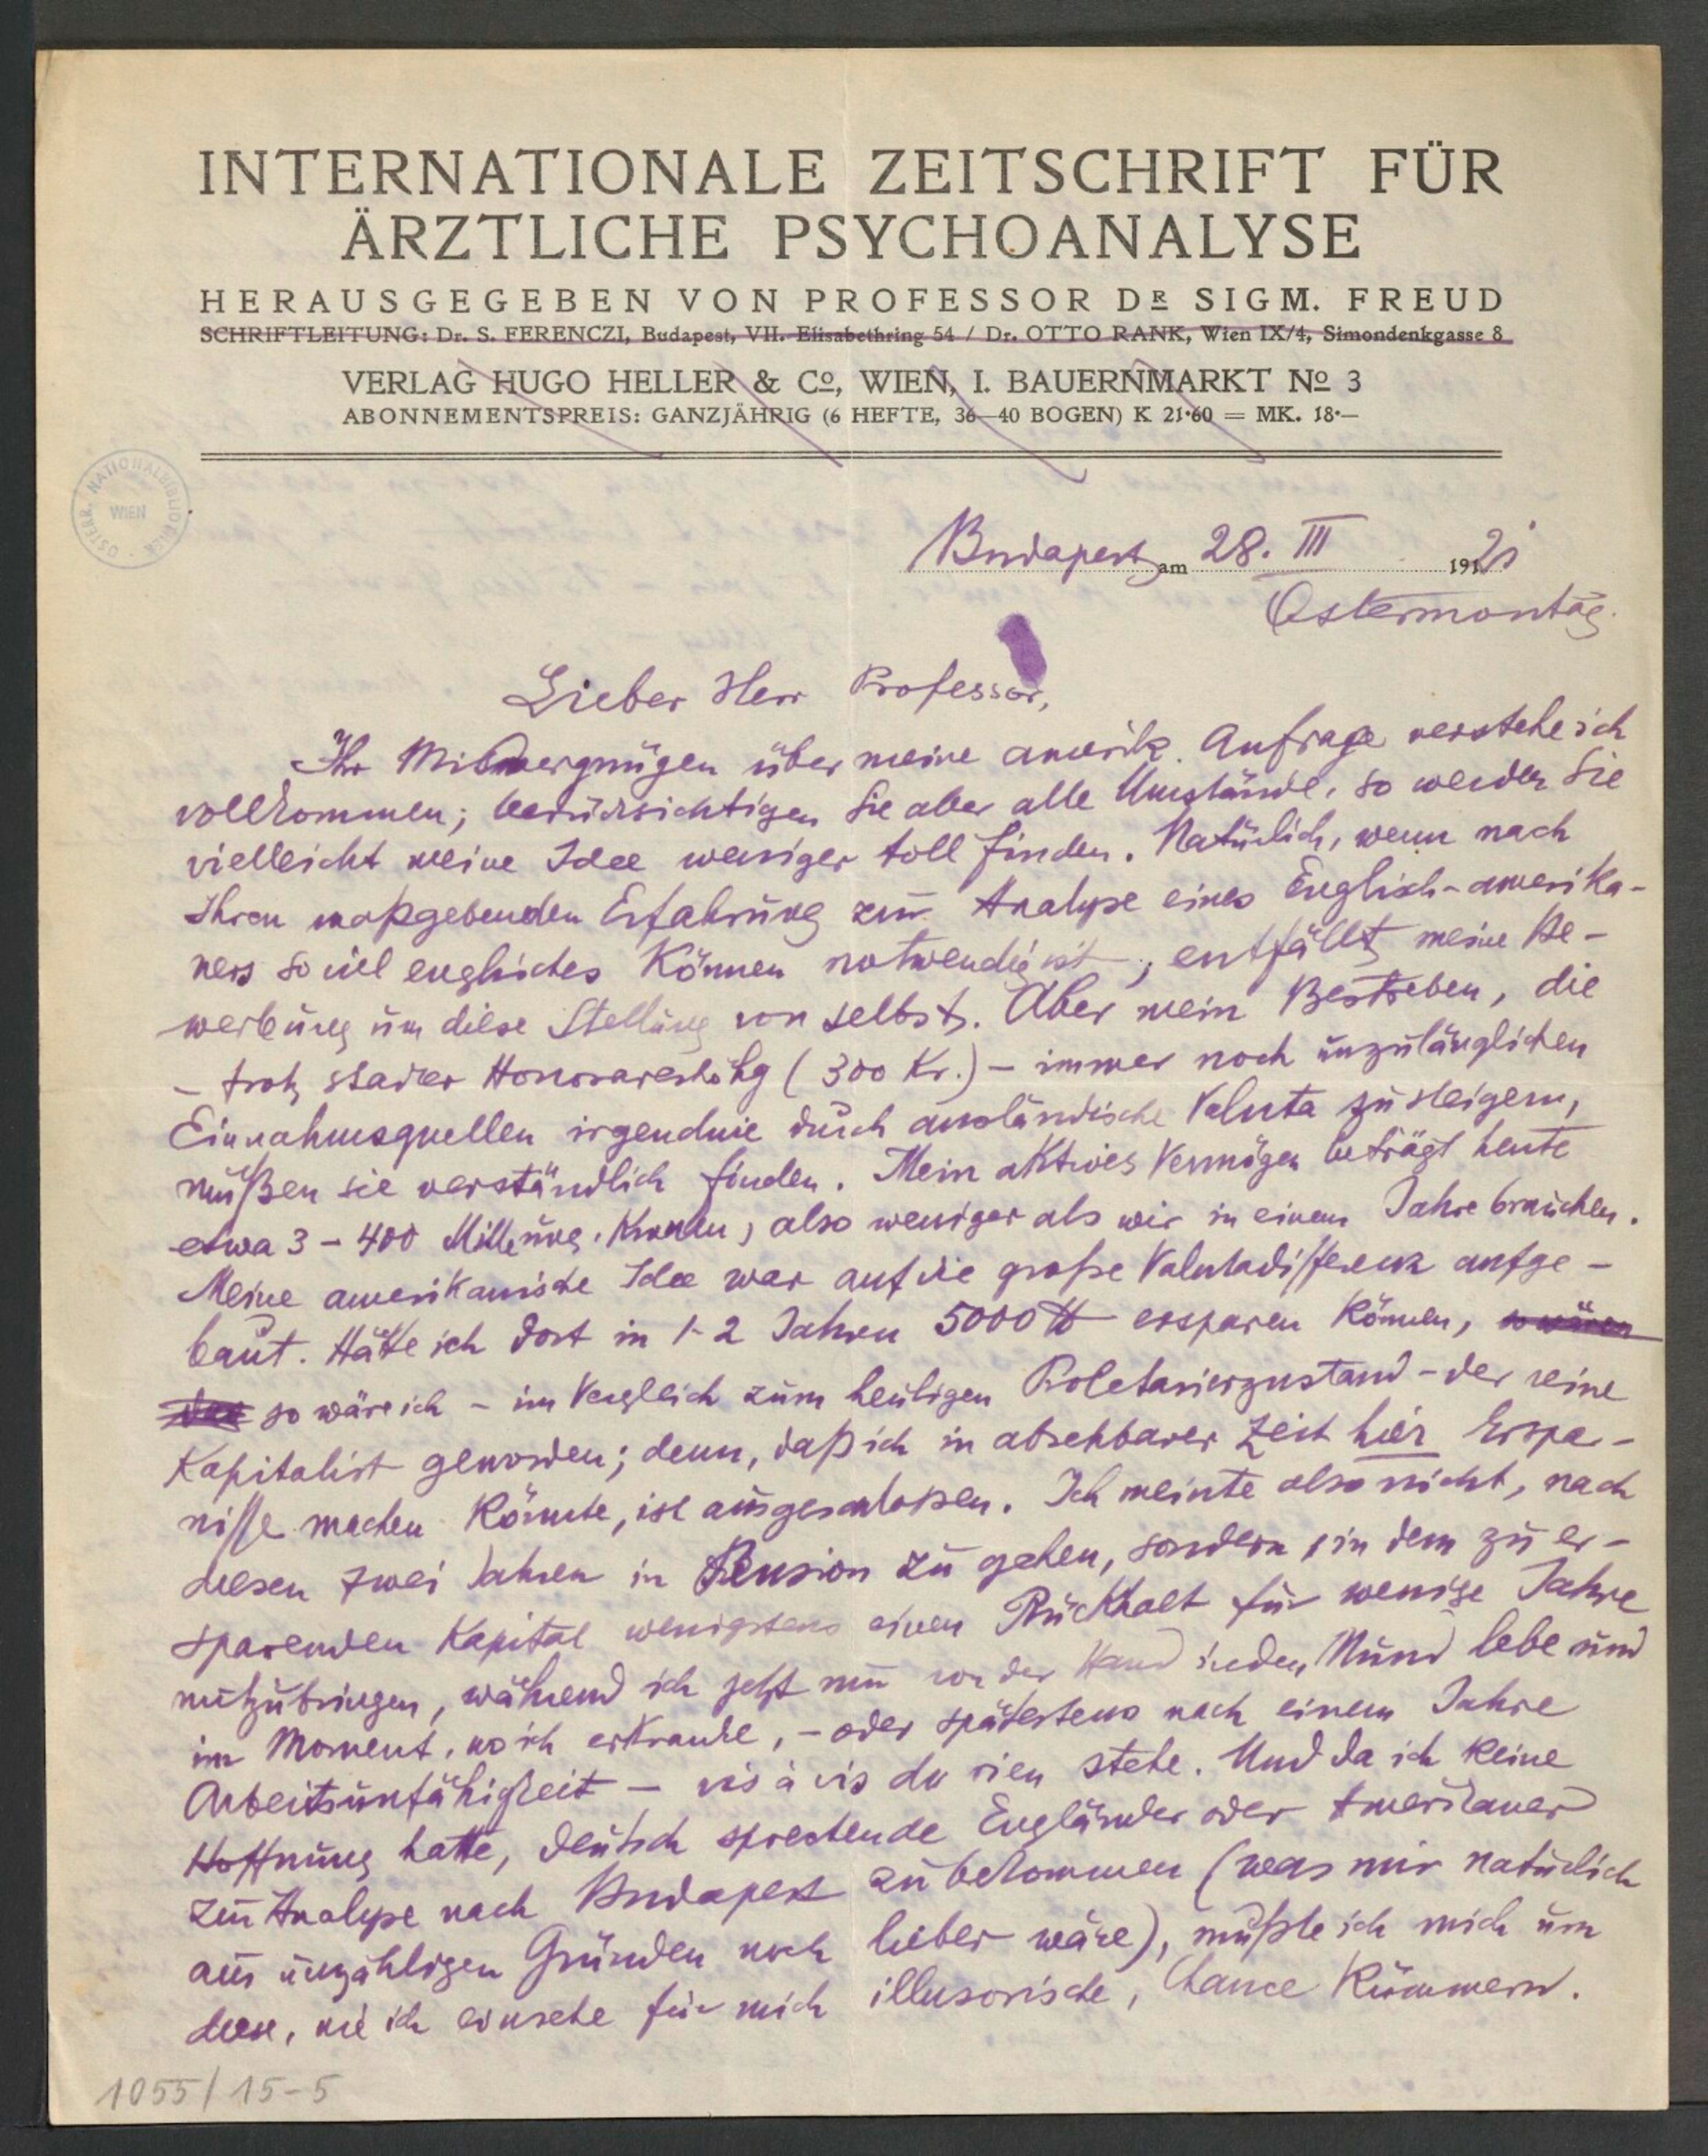 INTERNATIONALE ZEITSCHRIFT FÜR
ÄRZTLICHE PSYCHOANALYSE
HERAUSGEGEBEN VON PROFESSOR DR SIGM. FREUD
SCHRIFTLEITUNG: Dr. S. FERENCZI, Budapest, VII. Elisabethring 54 / Dr. OTTO RANK, Wien IX/4, Simondenkgasse 8
VERLAG HUGO HELLER & Co, WIEN, I. BAUERNMARKT No 3
ABONNEMENTSPREIS: GANZJÄHRIG (6 HEFTE, 36—40 BOGEN) K 21·60 = MK. 18·—
ÖSTERR. NATIONALBIBLIOTHEK WIEN
Budapest am 28. III 1921
Ostermontag.
Lieber Herr Professor,
Ihr Missvergnügen über meine amerik. Anfrage verstehe ich
vollkommen; berücksichtigen Sie aber alle Umstände, so werden Sie
vielleicht meine Idee weniger toll finden. Natürlich, wenn nach
Ihren maßgebenden Erfahrung zur Analyse eines Englisch-amerika-
ners soviel englisches Können notwendig ist, entfällt meine Be-
werbung um diese Stellung von selbst. Aber mein Bestreben, die
– trotz starker Honorarerhöhg (300 Kr.) – immer noch unzulänglichen
Einnahmsquellen irgendwie durch ausländische Valuta zu steigern,
müßen sie verständlich finden. Mein aktives Vermögen beträgt heute
etwa 3 – 400 Mille ung. Kronen, also weniger als wir in einem Jahre brauchen.
Meine amerikanische Idee war auf die große Valutadifferenz aufge-
baut. Hätte ich dort in 1-2 Jahren 5000 ersparen können, so wären
so wäre ich – im Vergleich zum heutigen Proletarierzustand – der reine
Kapitalist geworden; denn, daß ich in absehbarer Zeit hier Erspar-
nisse machen könnte, ist ausgeschloßen. Ich meinte also nicht, nach
diesen zwei Jahren in Pension zu gehen, sondern, in dem zu er-
sparenden Kapital wenigstens einen Rückhalt für wenige Jahre
mitzubringen, während ich jetzt nur von der Hand in den Mund lebe und
im Moment, wo ich erkranke, – oder spätestens nach einem Jahre
Arbeitsunfähigkeit – vis à vis du rien stehe. Und da ich keine
Hoffnung hatte, deutsch sprechende Engländer oder Amerikaner
zur Analyse nach Budapest zu bekommen (was mir natürlich
aus unzähligen Gründen noch lieber wäre), mußte ich mich um
diese, wie ich einsehe für mich illusorische, Chance kümmern.
1055/15-5